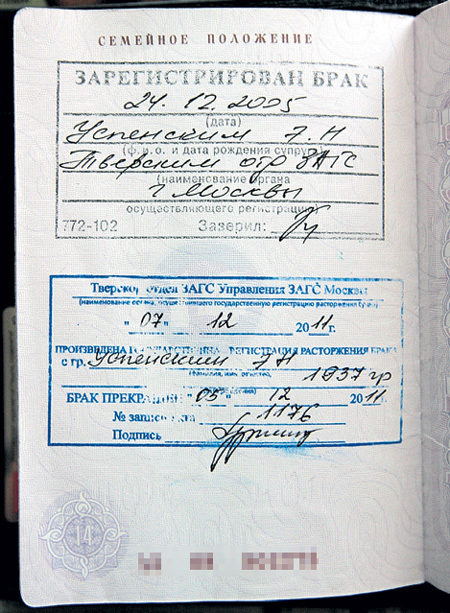 СЕМЕЙНОЕ ПОЛОЖЕНИЕ
ЗАРЕГИСТРИРОВАН БРАК
24. 12. 2005
(дата)
Успенским Э. Н
(ф. и. о. и дата рождения супруга)
Тверским отд ЗАГС
(наименование органа
г Москвы
осуществляющего регистрацию)
772-102 Заверил:
Тверской отдел ЗАГС Управления ЗАГС Москвы
(наименование органа, осуществившего государственную регистрацию расторжения брака)
"07" 12 2011г.
ПРОИЗВЕДЕНА ГОСУДАРСТВЕННАЯ РЕГИСТРАЦИЯ РАСТОРЖЕНИЯ БРАКА
с гр. Успенским Э Н
(фамилия, имя, отчество,
1937 гр
БРАК ПРЕКРАЩЕН "05" 12 2011.
№ записи акта 1176
Подпись
14